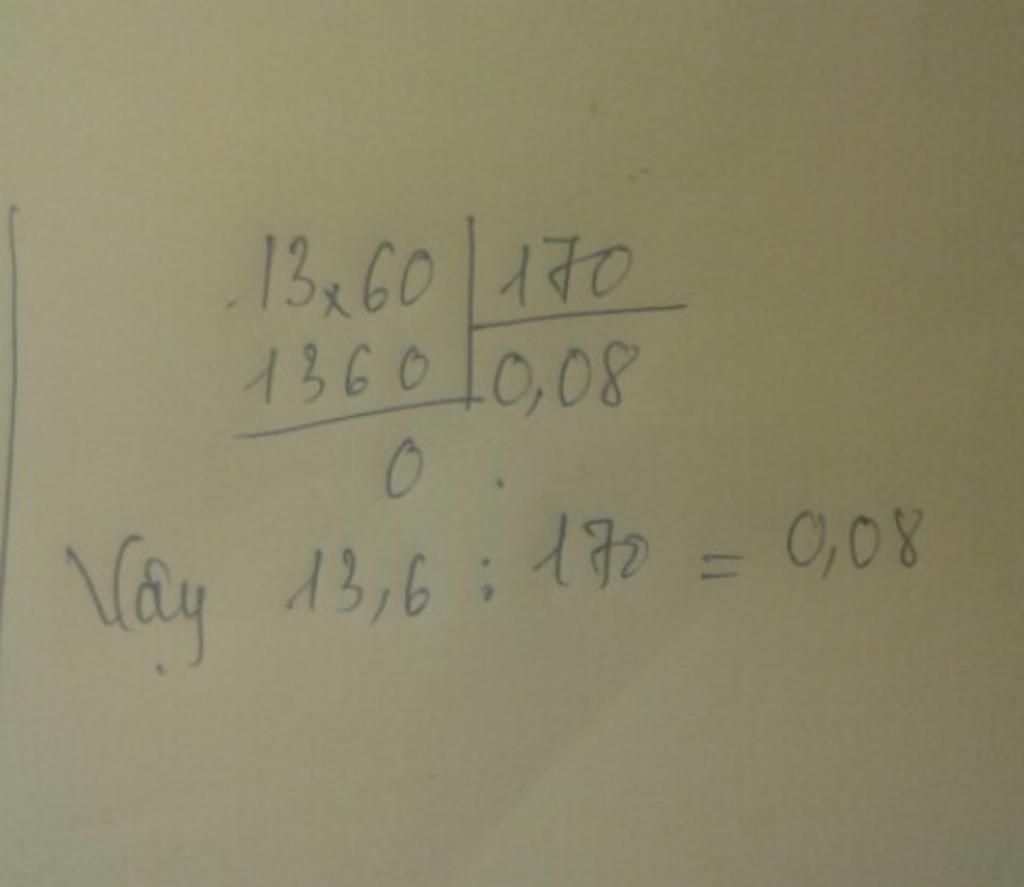 13,60 170
1360 0,08
0
Vậy 13,6 : 170 = 0,08